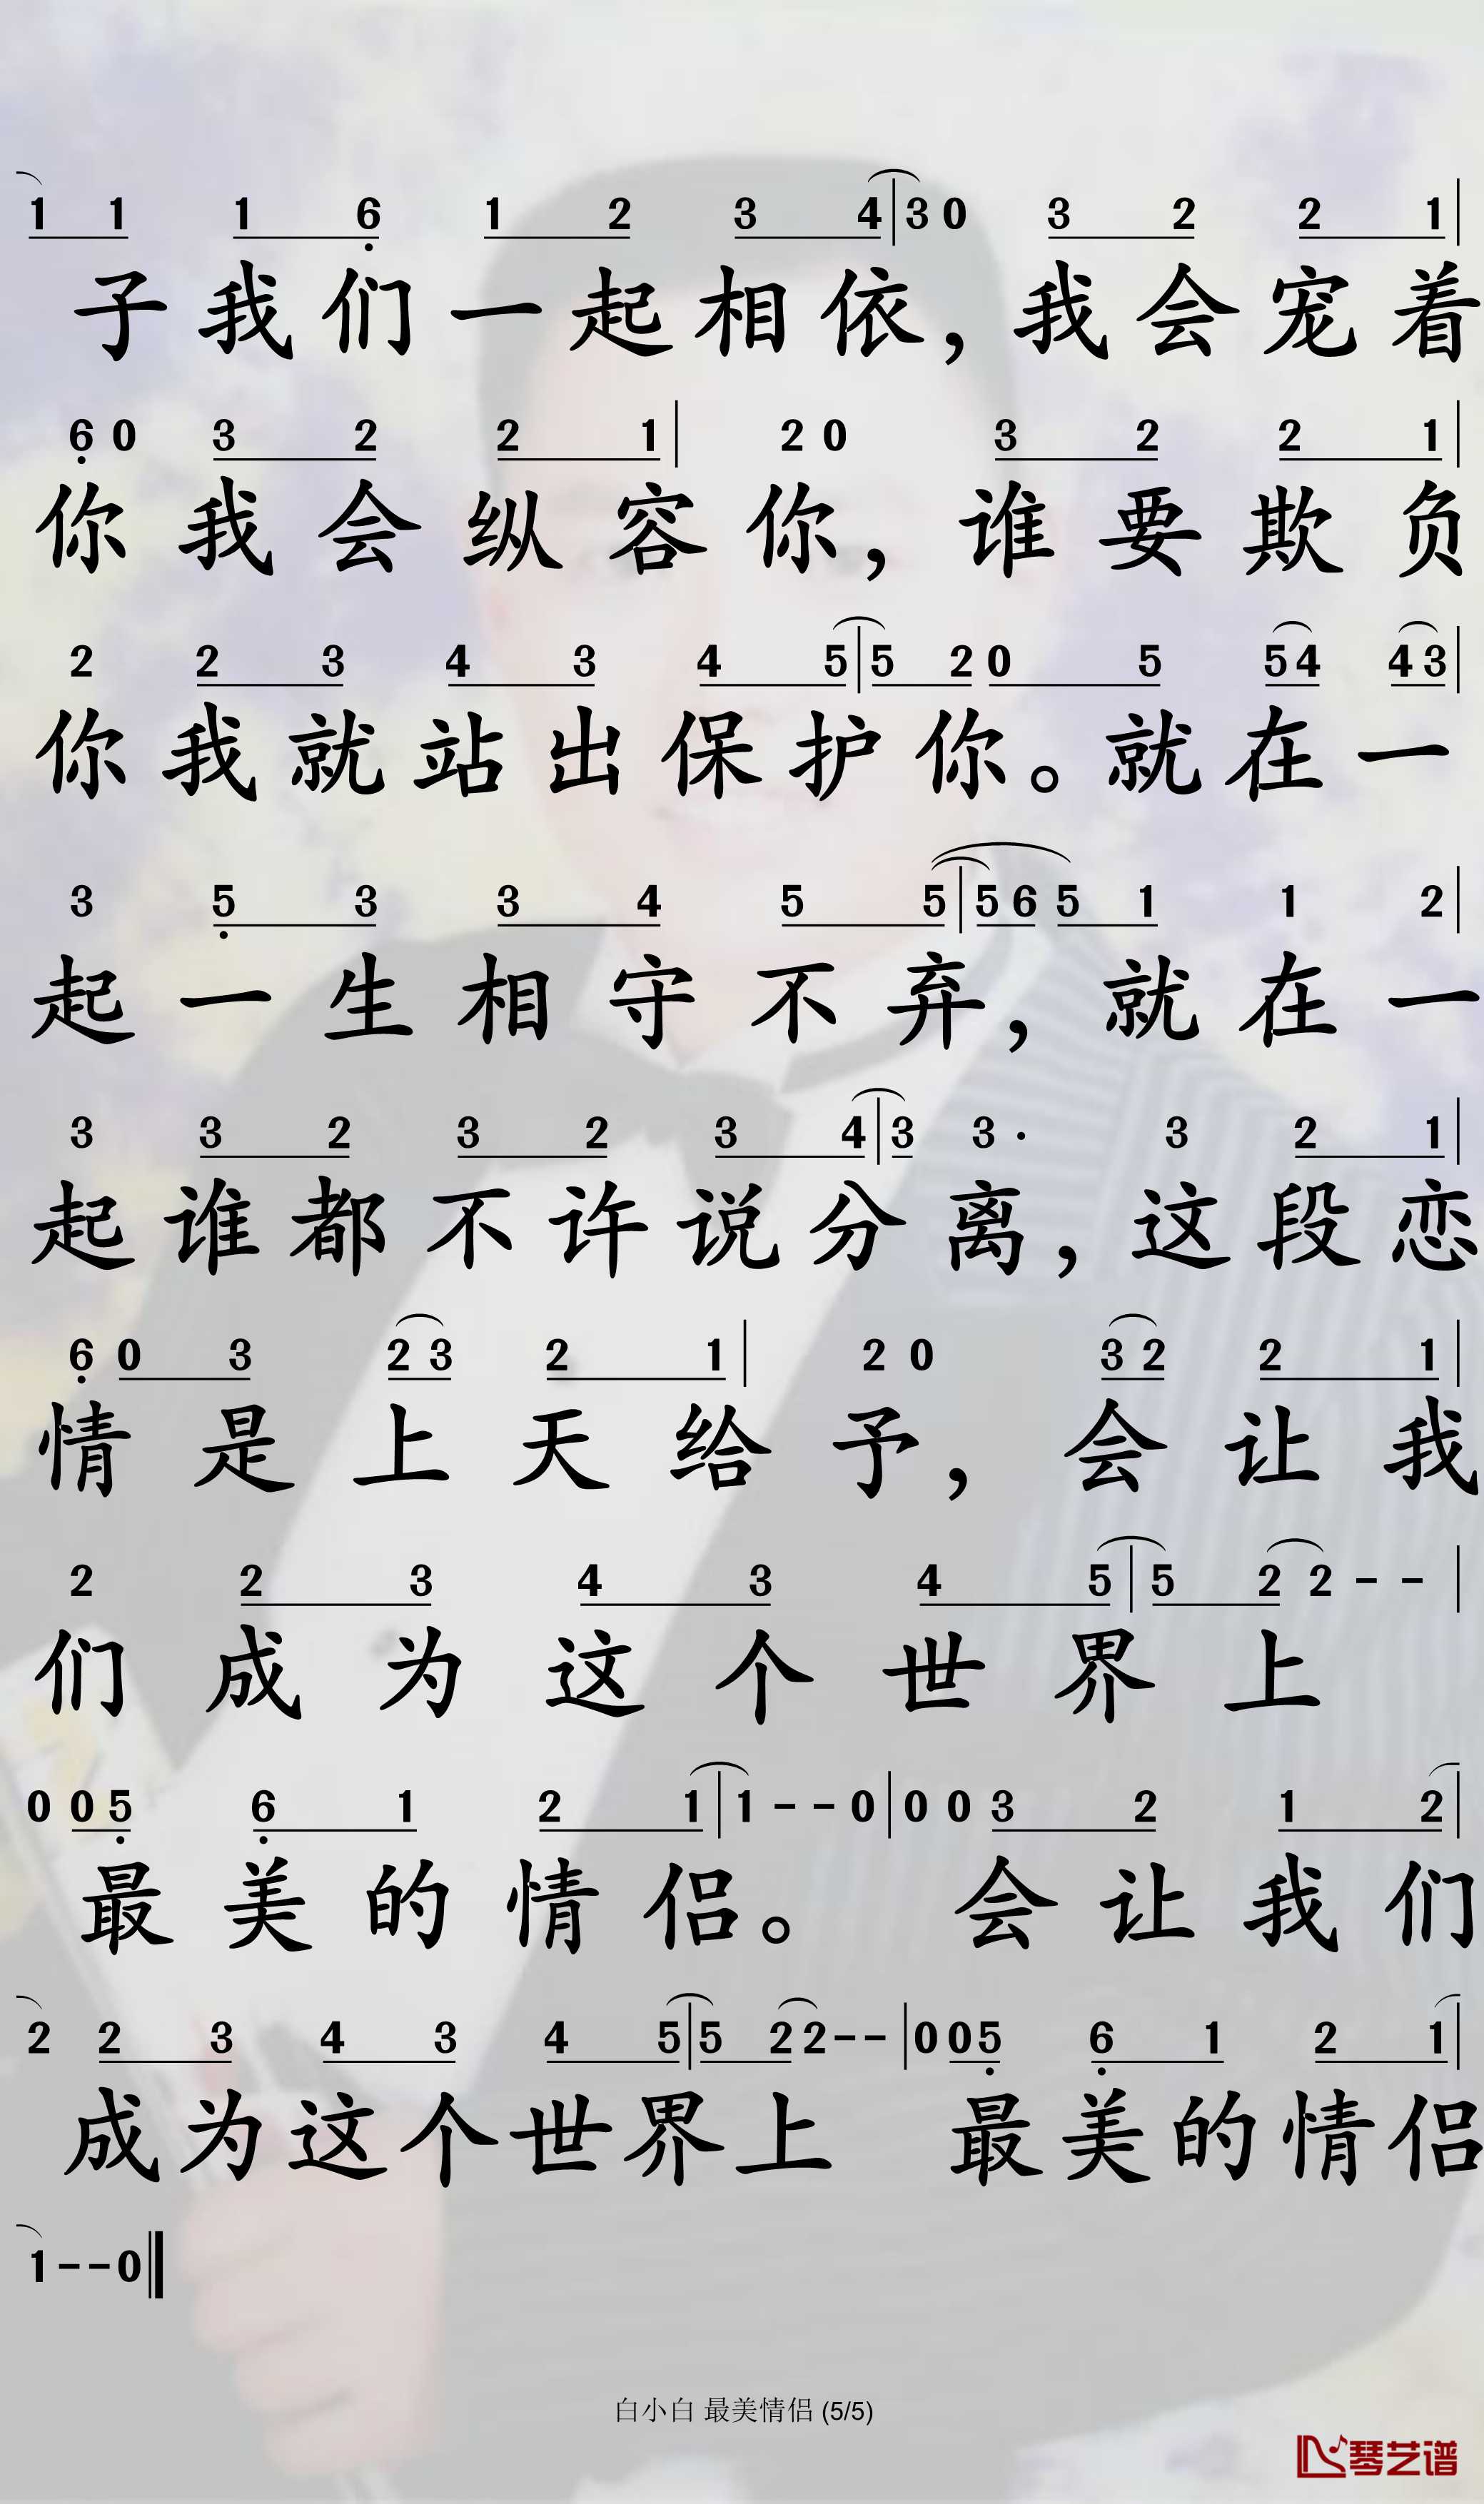 1 1 1 6 1 2 3 4 | 3 0 3 2 2 1 |
子我们一起相依，我会宠着
6 0 3 2 2 1 | 2 0 3 2 2 1 |
你我会纵容你，谁要欺负
2 2 3 4 3 4 5 | 5 2 0 5 5 4 4 3 |
你我就站出保护你。就在一
3 5 3 3 4 5 5 | 5 6 5 1 1 2 |
起一生相守不弃，就在一
3 3 2 3 2 3 4 | 3 3 · 3 2 1 |
起谁都不许说分离，这段恋
6 0 3 2 3 2 1 | 2 0 3 2 2 1 |
情是上天给予，会让我
2 2 3 4 3 4 5 | 5 2 2 - - |
们成为这个世界上
0 0 5 6 1 2 1 | 1 - - 0 | 0 0 3 2 1 2 |
最美的情侣。 会让我们
2 2 3 4 3 4 5 | 5 2 2 - - | 0 0 5 6 1 2 1 |
成为这个世界上 最美的情侣
1 - - 0 ‖
白小白 最美情侣 (5/5)
琴艺谱